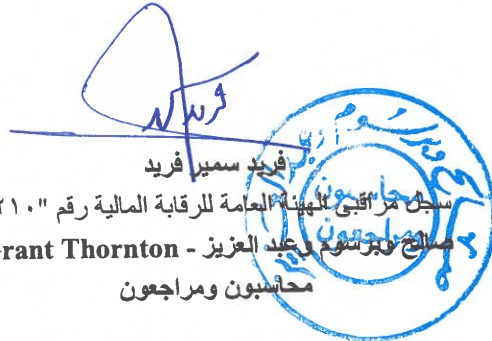 فريد سمير فريد
سجل مراقبي الهيئة العامة للرقابة المالية رقم "٢١٠
صالح وبرسوم وعبد العزيز - Grant Thornton
محاسبون ومراجعون
محاسبون
ومراجعون